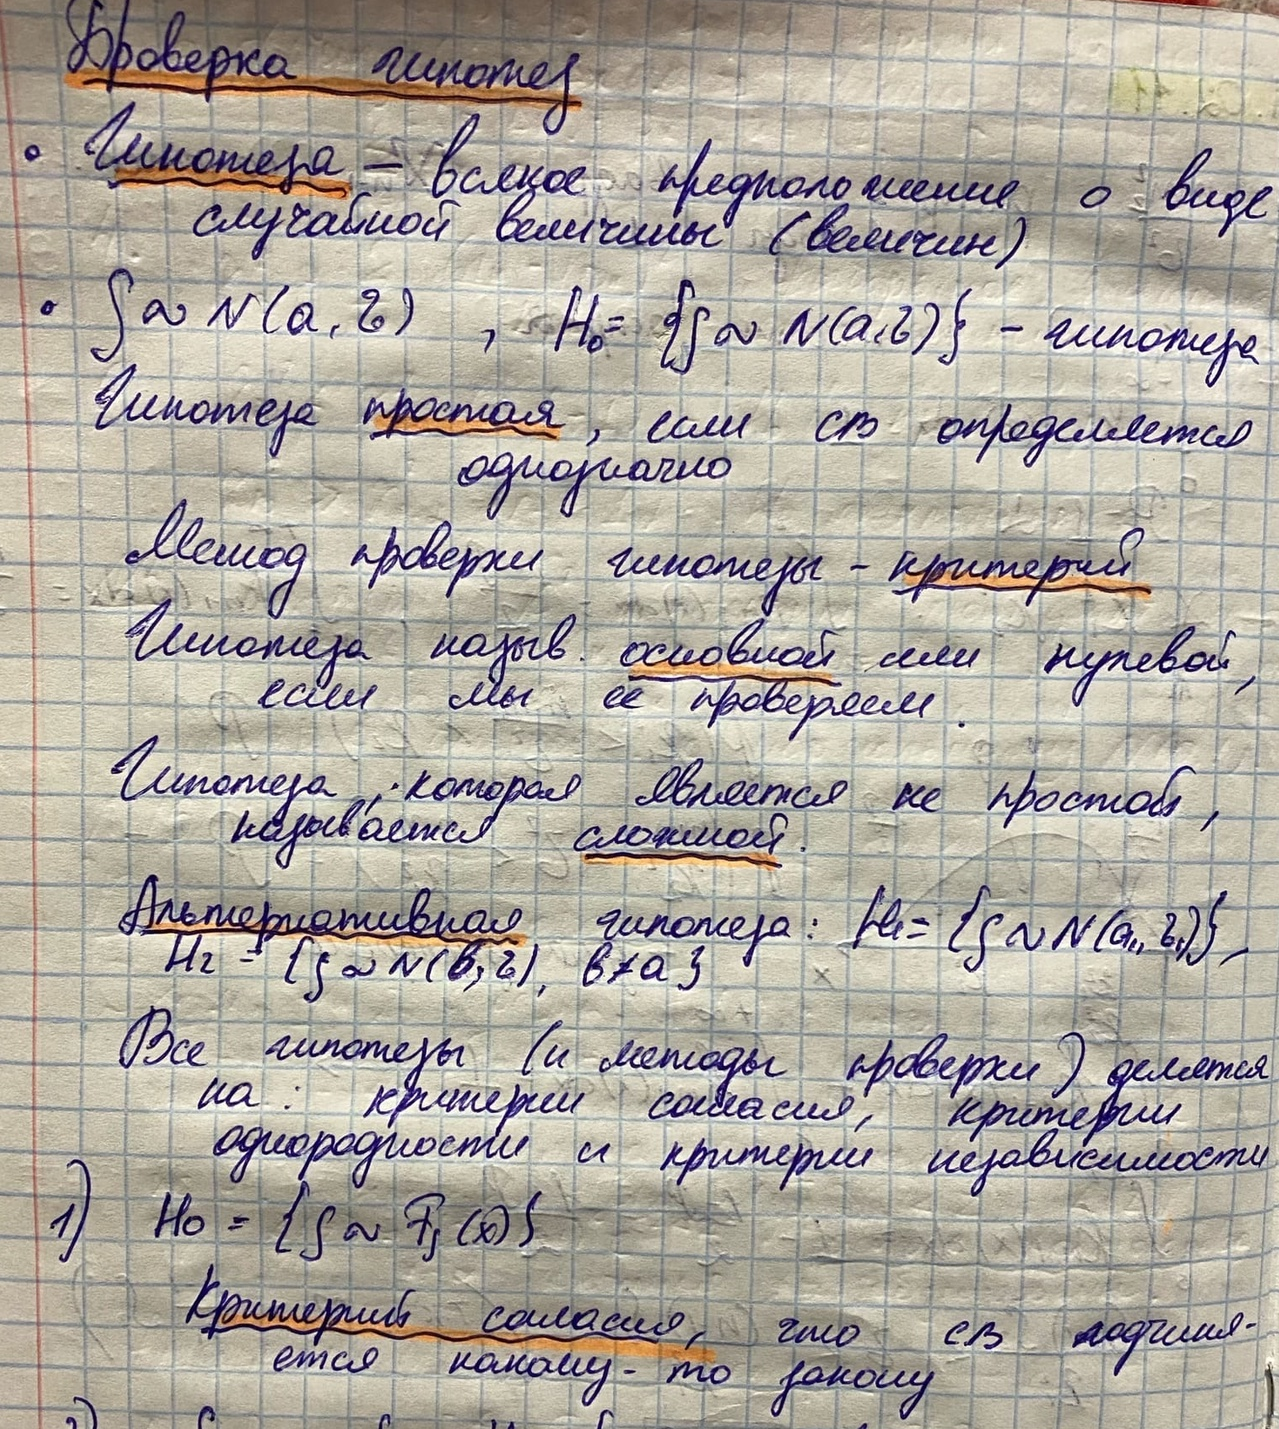 Проверка гипотез
• Гипотеза – всякое предположение о виде
случайной величины (величин)
• ξ ~ N(a, τ) , H₀ = {ξ ~ N(a, τ)} – гипотеза
Гипотеза простая, если св определяется
однозначно
Метод проверки гипотезы – критерий
Гипотеза назыв. основной или нулевой,
если мы ее проверяем.
Гипотеза, которая является не простой,
называется сложной.
Альтернативная гипотеза: H₁ = {ξ ~ N(a₁, τ₁)},
H₂ = {ξ ~ N(b, τ), b ≠ a}
Все гипотезы (и методы проверки) делятся
на: критерии согласия, критерии
однородности и критерии независимости
1) H₀ = {ξ ~ Fξ(x)}
Критерий согласия, что св подчиня-
ется какому-то закону